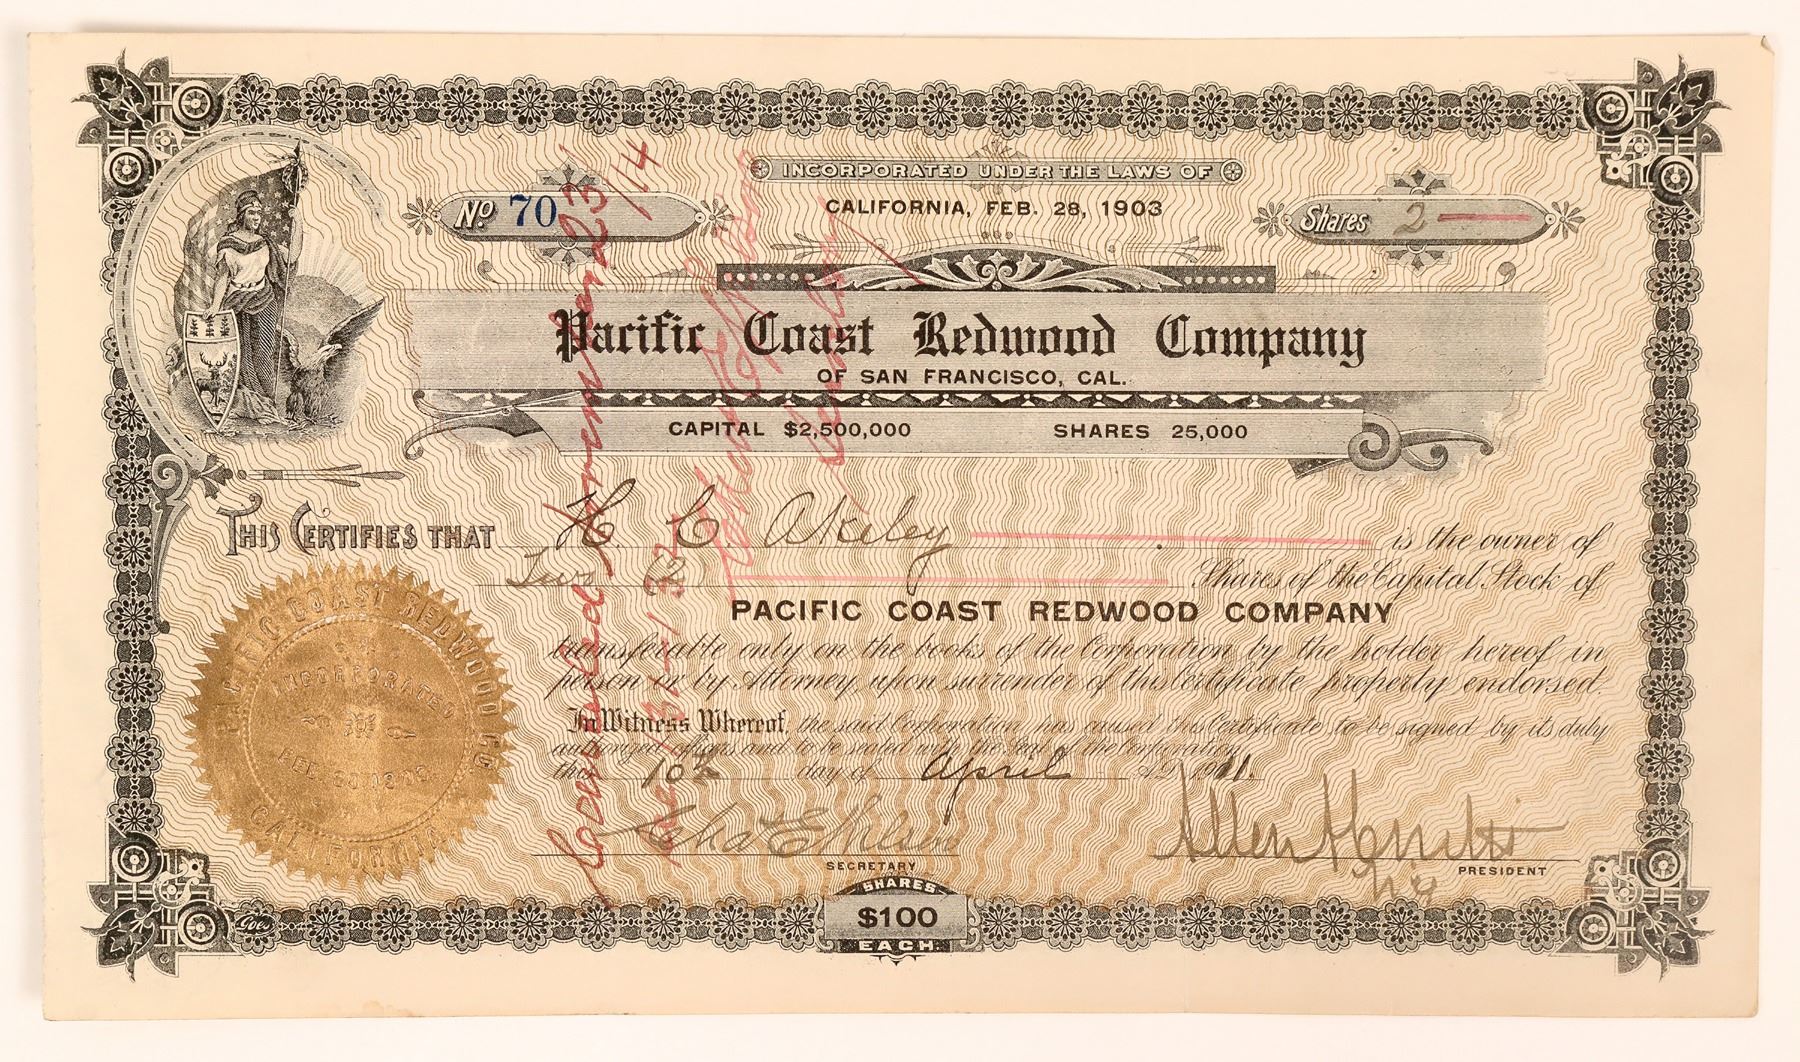 INCORPORATED UNDER THE LAWS OF
CALIFORNIA, FEB. 28, 1903
No 70
Shares 2
Pacific Coast Redwood Company
OF SAN FRANCISCO, CAL.
CAPITAL $2,500,000 SHARES 25,000
THIS CERTIFIES THAT H. C. Akeley is the owner of
Two Shares of the Capital Stock of
PACIFIC COAST REDWOOD COMPANY
transferable only on the books of the Corporation by the holder hereof in
person or by Attorney, upon surrender of this Certificate properly endorsed.
In Witness Whereof, the said Corporation has caused this Certificate to be signed by its duty
authorized officers and to be sealed with the Seal of the Corporation
this 10th day of April A.D. 1911.
SECRETARY
PRESIDENT
SHARES
$100
EACH
Goes
PACIFIC COAST REDWOOD CO.
INCORPORATED
CALIFORNIA
Cancelled 23/14